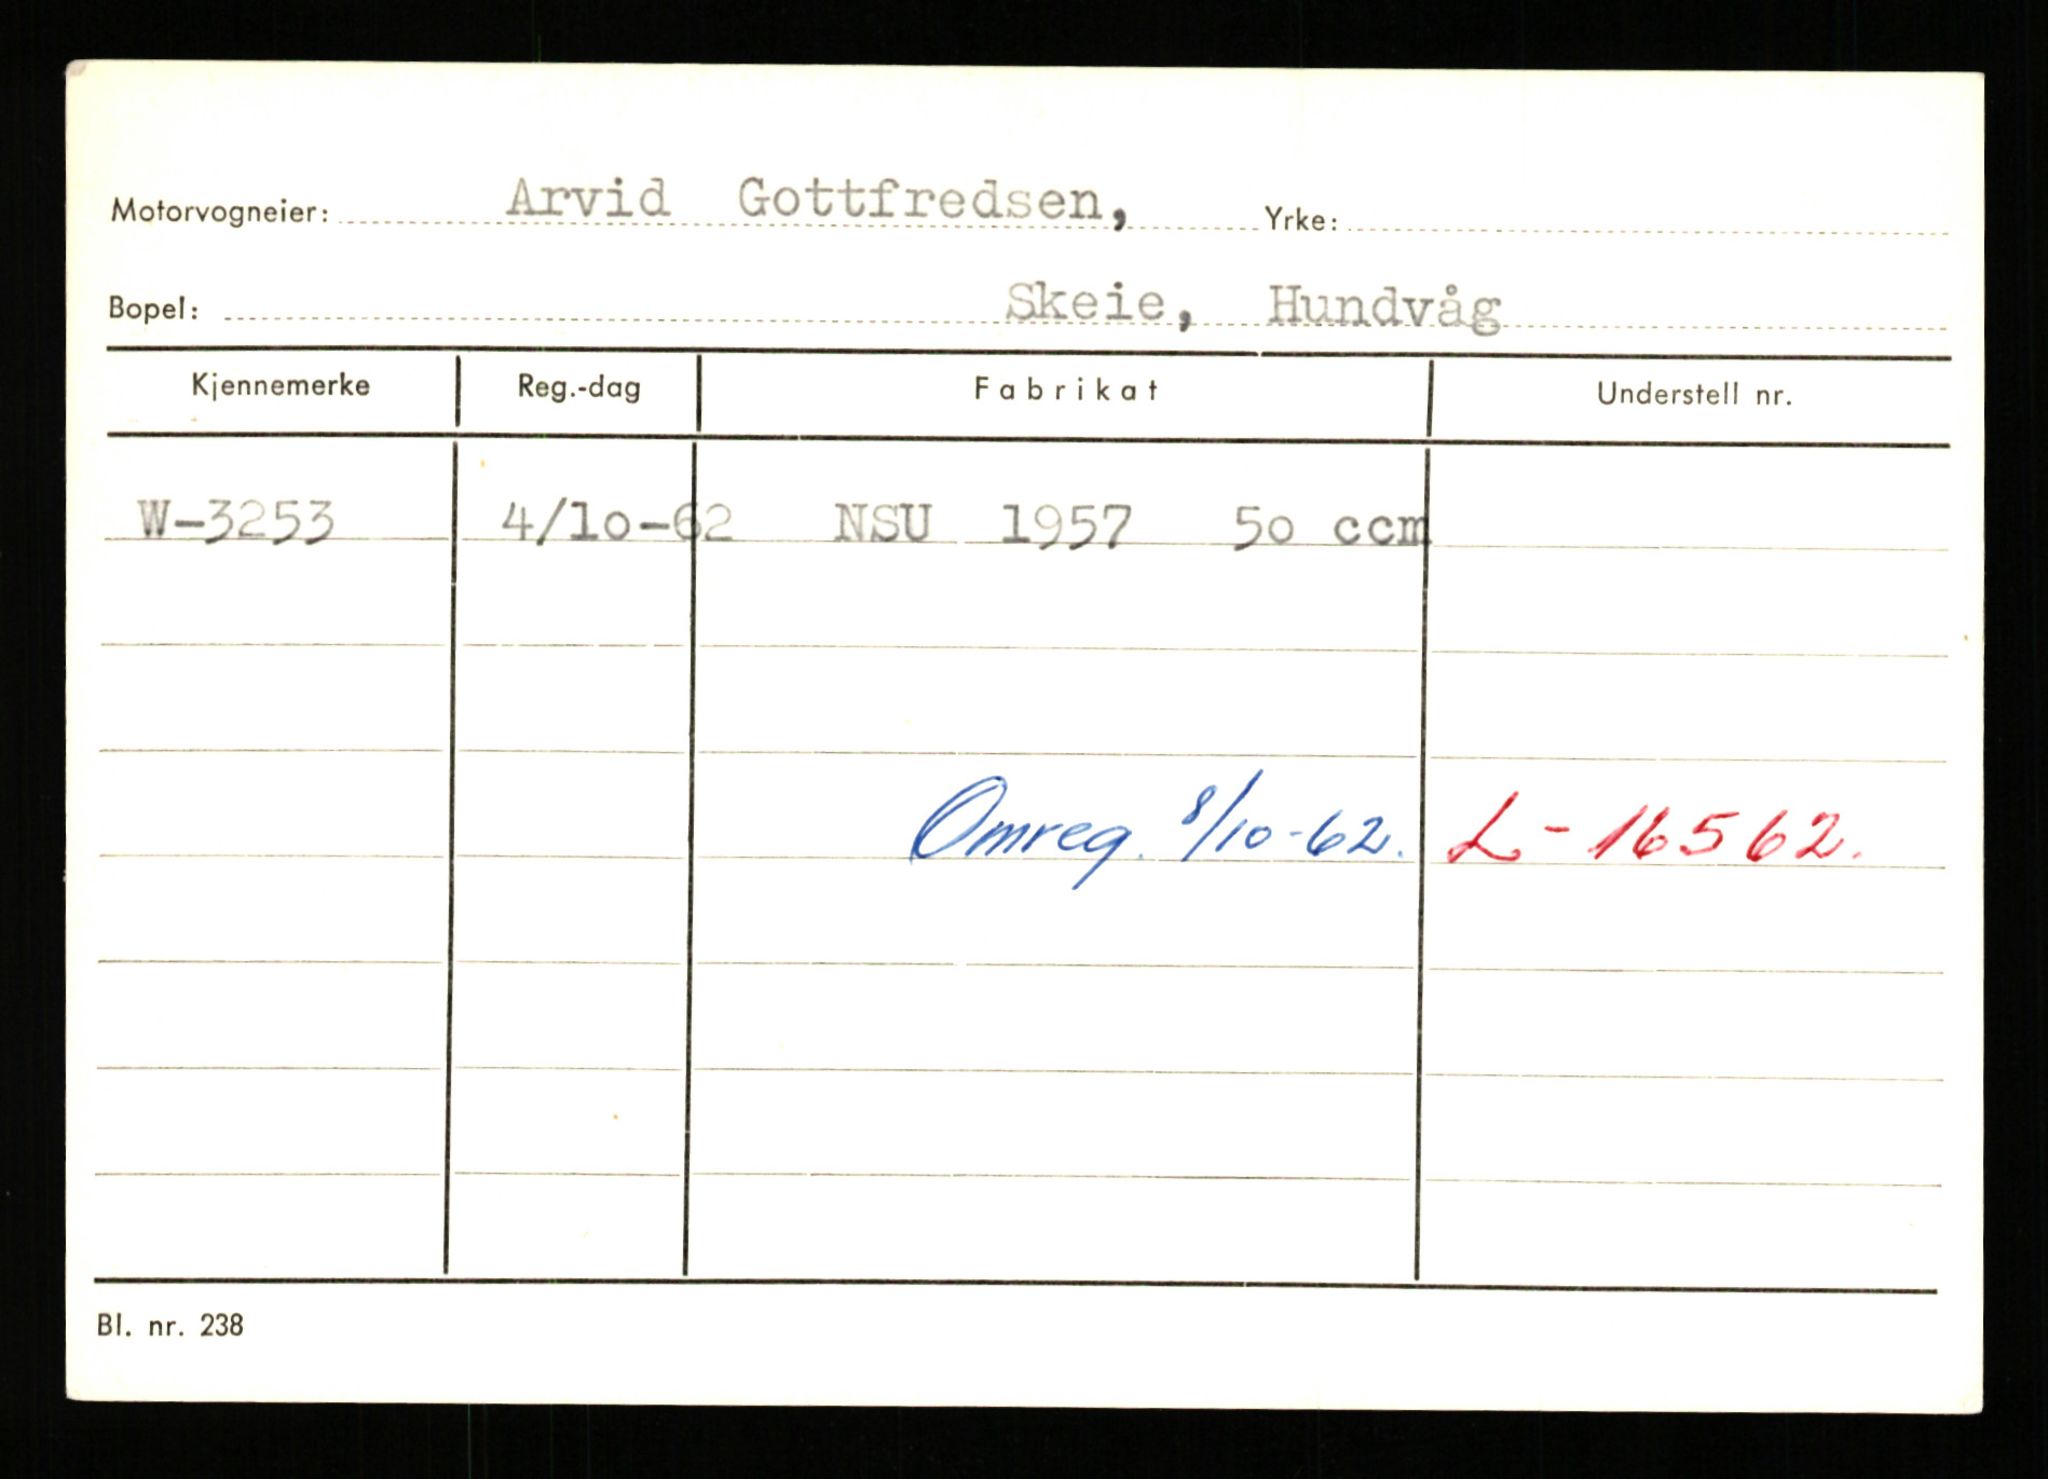 Motorvogneier: Arvid Gottfredsen, Yrke:
Bopel: Skeie, Hundvåg
Kjennemerke Reg.-dag Fabrikat Understell nr.
W-3253 4/10-62 NSU 1957 50 ccm
Omreg. 8/10-62. L-16562.
Bl. nr. 238